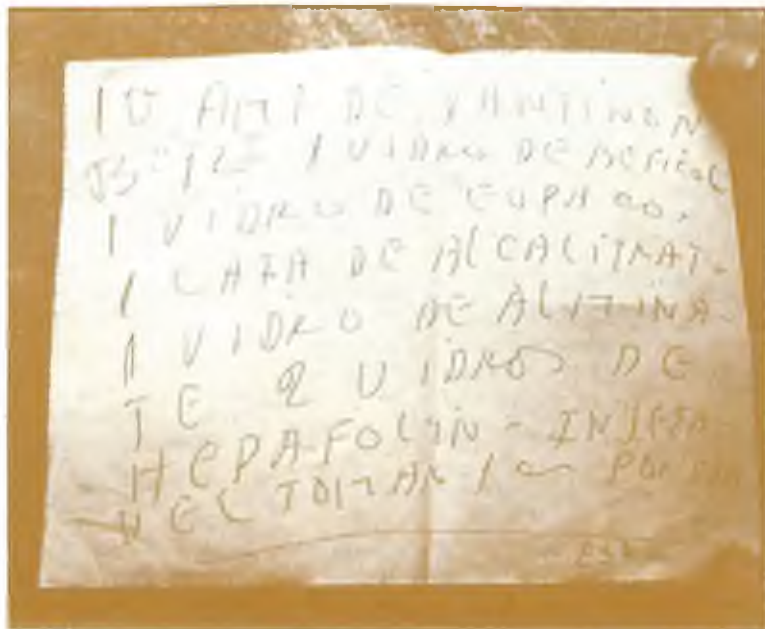 10 AMP DE XANTINON
B-12- 1 VIDRO DE
1 VIDRO DE
1 CAXA DE ALCALITRAT.
1 VIDRO DE ALUMINA-
TE 2 VIDROS DE
HEPAFOLIN - INJETA-
VEL TOMAR 1 POR DIA